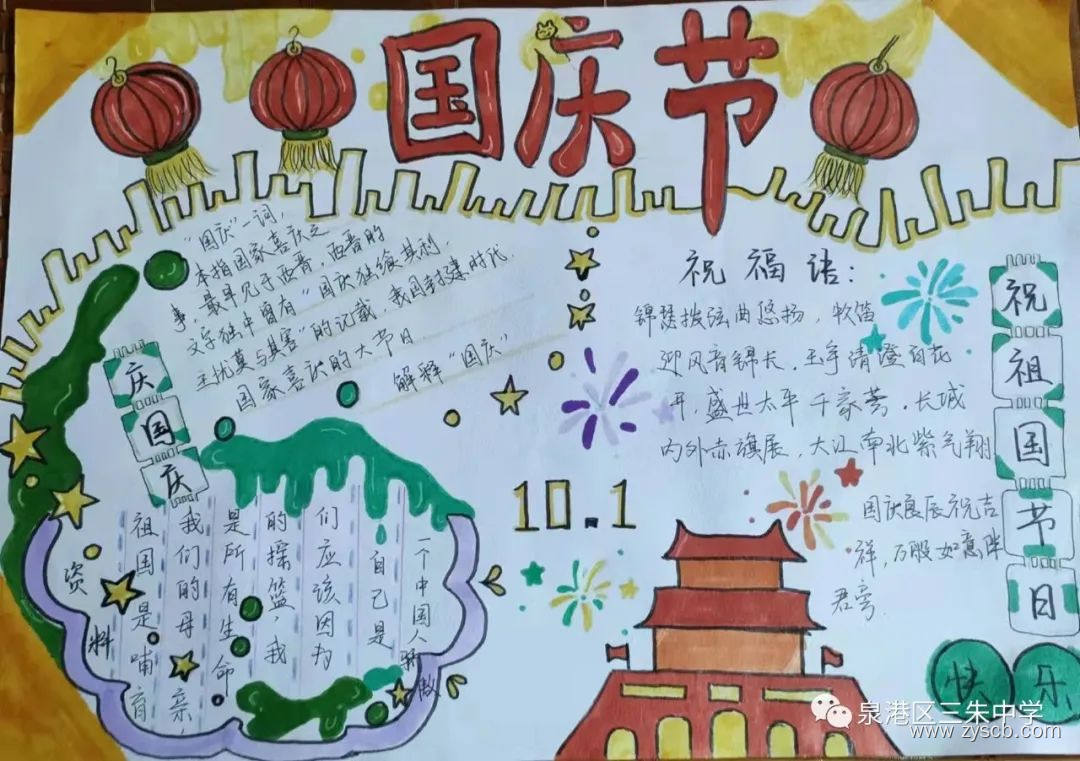 国庆节
"国庆"一词,
本指国家喜庆之
事、最早见于西晋,西晋的
文字独中曾有"国庆独飨其利,
主忧莫与其害"的记载,我国封建时代、
国家喜庆的大节日
解释"国庆"
庆国庆
资料
祖国是哺育
我们的母亲,
是所有生命
的探篮,我
们应该因为
自己是
一个中国人
骄傲
10.1
祝福语:
锦瑟拨弦曲悠扬,牧笛
迎风音锦长,玉宇请澄百花
开,盛世太平千家誉.长城
内外赤旗展,大江南北紫气翔
国庆良辰祝吉
祥,万般如意伴
君旁.
祝祖国节日
快乐
泉港区三朱中学
www.zyscb.com